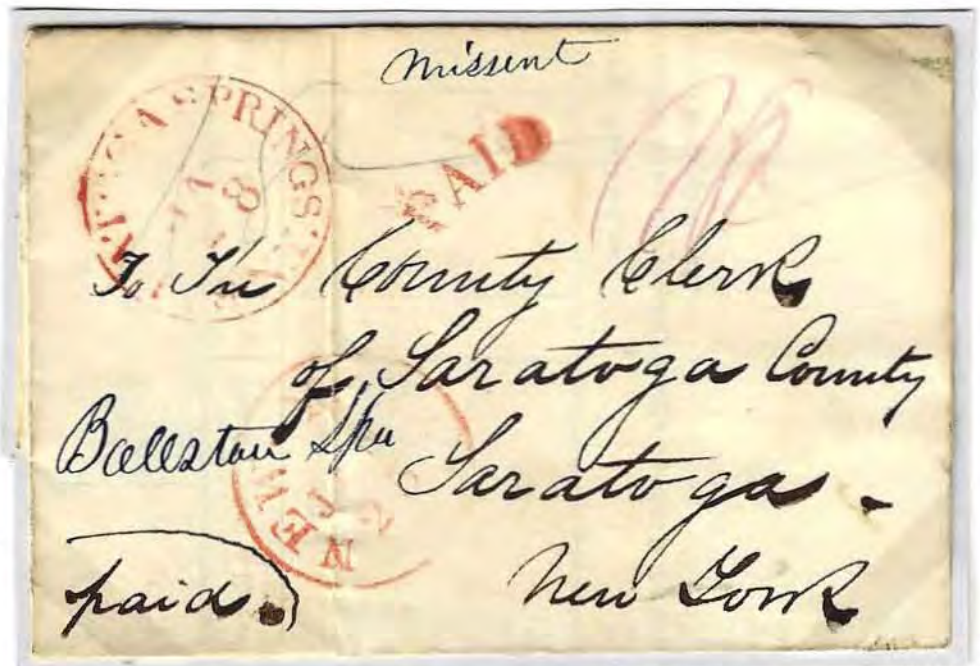 missent
PAID
SPRINGS
To The County Clerk
of Saratoga County
Ballston Spa
Saratoga -
NEW
New York
paid